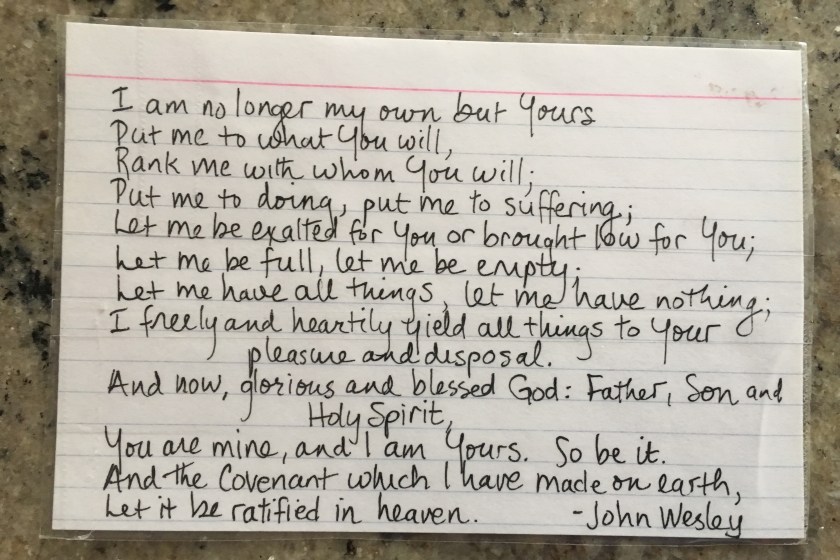 I am no longer my own but Yours
Put me to what You will,
Rank me with whom You will;
Put me to doing, put me to suffering;
Let me be exalted for You or brought low for You;
Let me be full, let me be empty;
Let me have all things, let me have nothing;
I freely and heartily yield all things to Your
pleasure and disposal.
And now, glorious and blessed God: Father, Son and
Holy Spirit,
You are mine, and I am Yours. So be it.
And the Covenant which I have made on earth,
Let it be ratified in heaven. -John Wesley